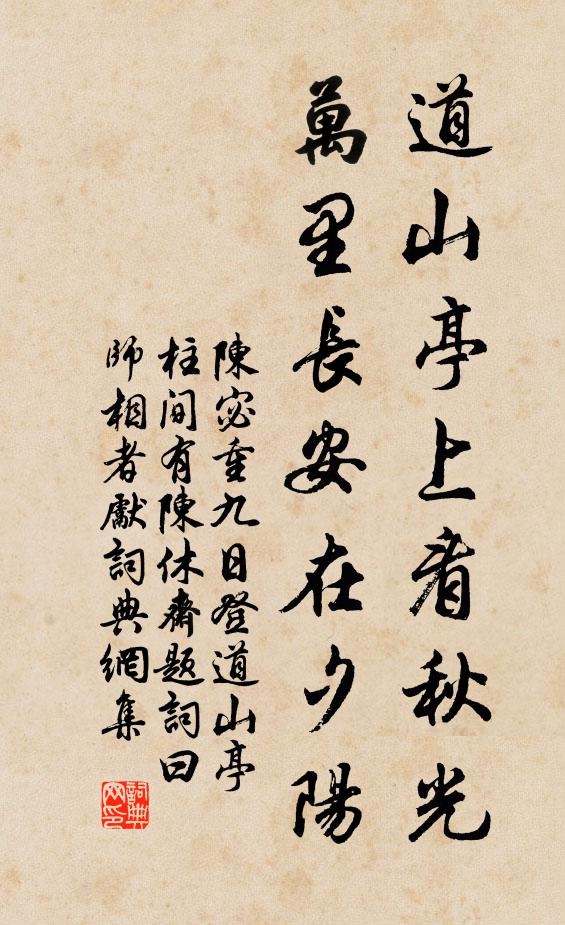 道山亭上看秋光
萬里長安在夕陽
陳宓重九日登道山亭
柱間有陳休齋題詞曰
師相者獻詞典網集
詞典网印